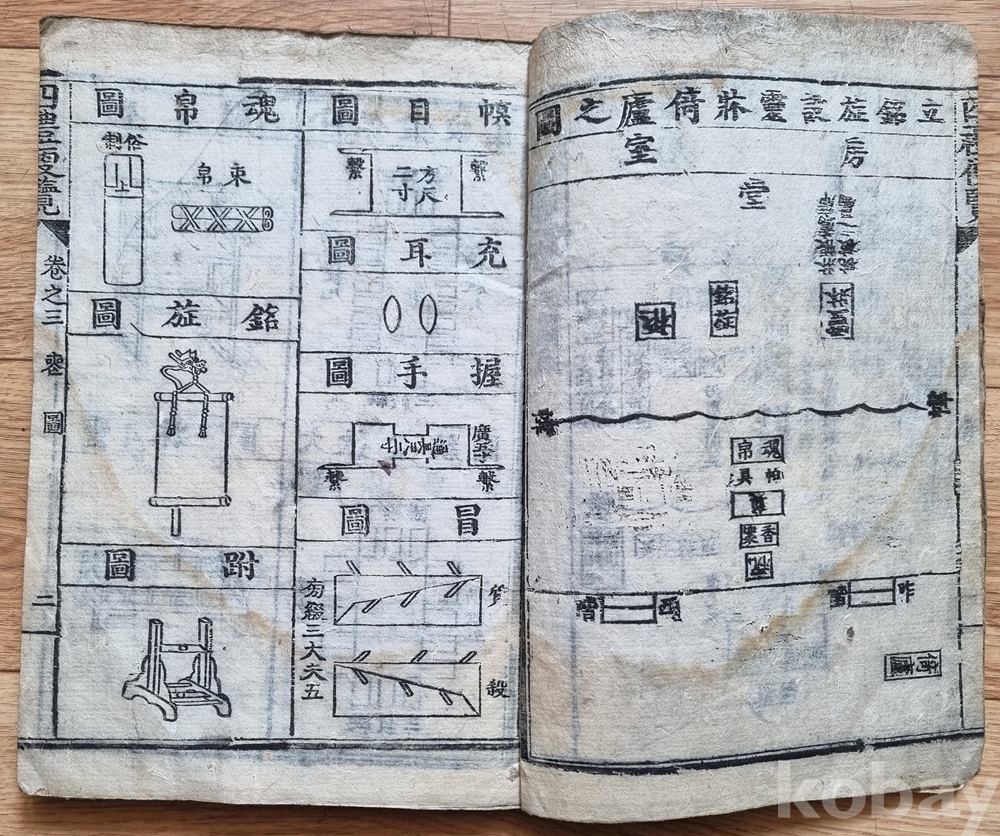 四禮便覽
立銘旌設靈牀倚廬之圖
房
室
堂
銘旌
柩
魂帛
帕具
香案
倚廬
幎目圖
繫
方尺二寸
繫
充耳圖
握手圖
廣五寸
繫
繫
冒圖
質
殺
旁綴三大夫五
魂帛圖
束帛
俗制
上
銘旌圖
跗圖
四禮便覽
卷之三
喪
圖
二
kobay